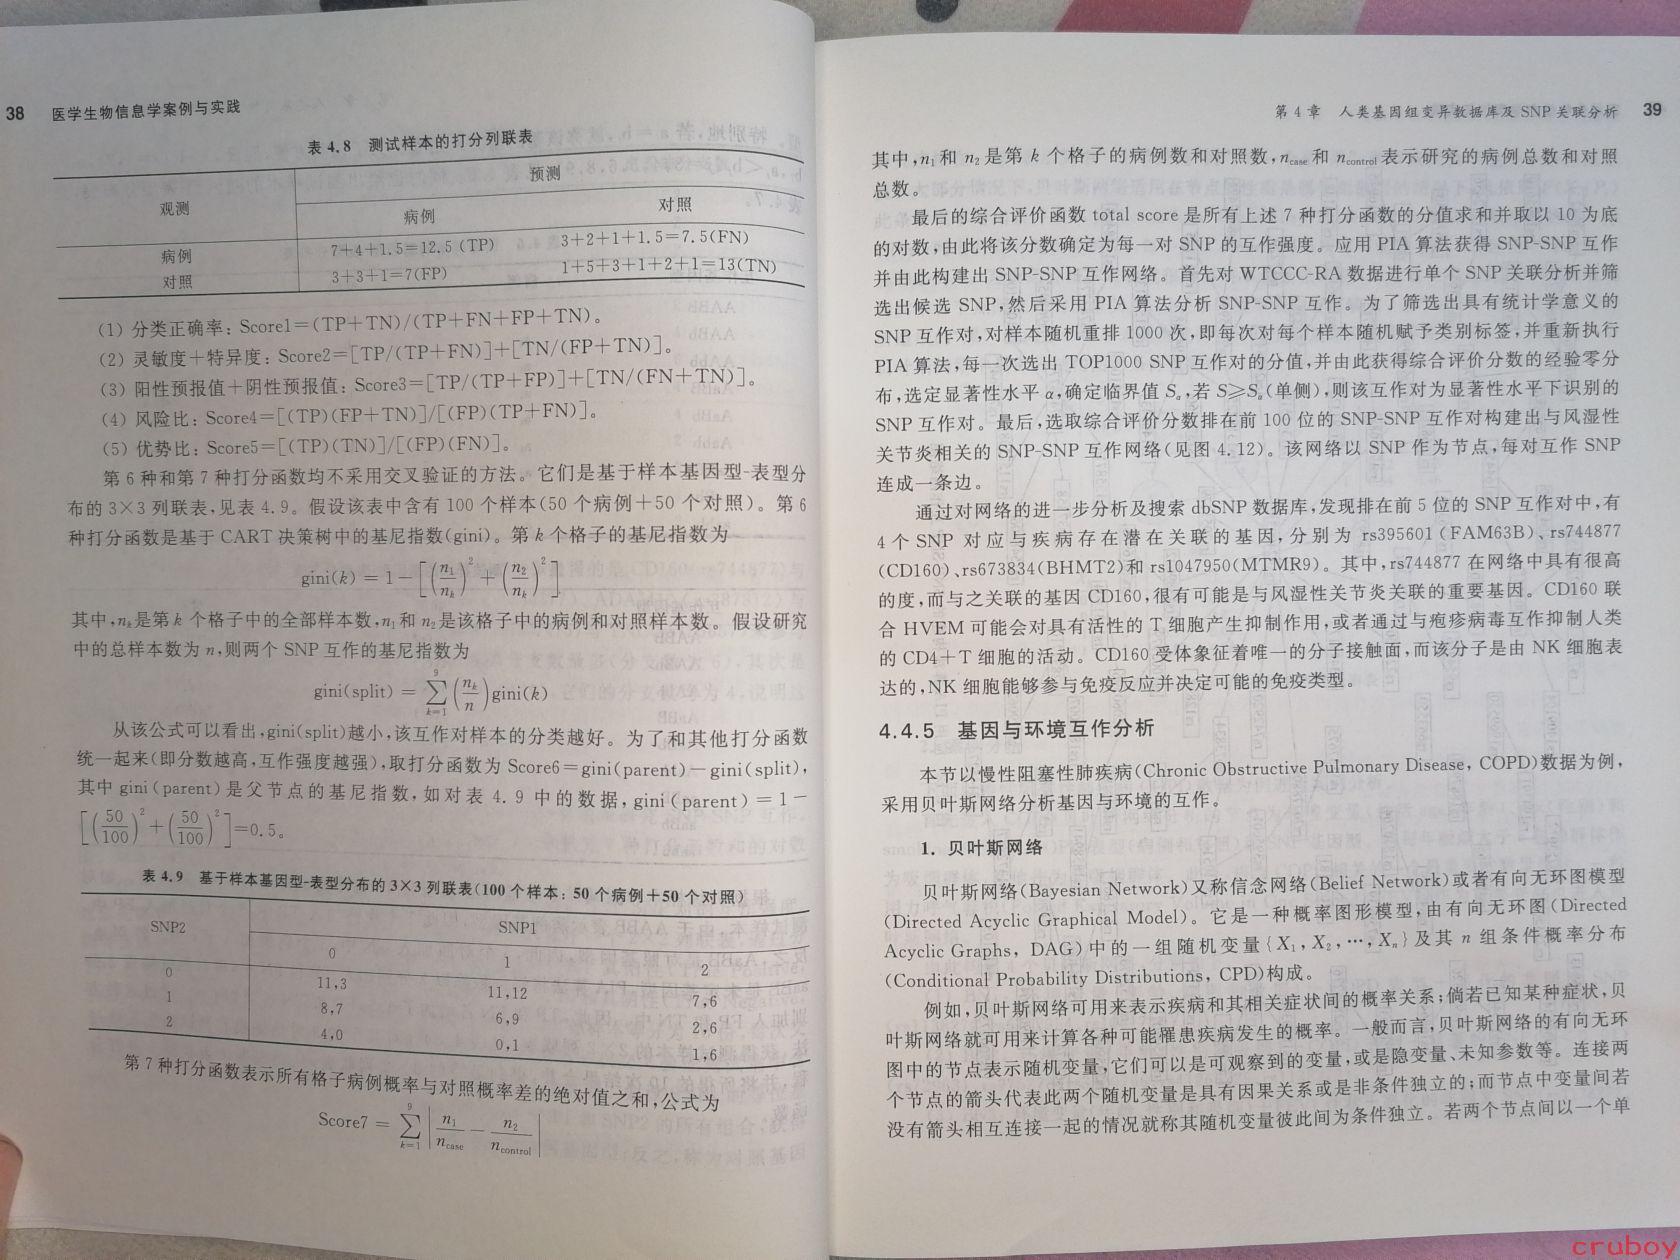 38 医学生物信息学案例与实践
表 4.8 测试样本的打分列联表
观测 预测
病例 对照
病例 7+4+1.5=12.5 (TP) 3+2+1+1.5=7.5(FN)
对照 3+3+1=7(FP) 1+5+3+1+2+1=13(TN)
(1) 分类正确率: Score1=(TP+TN)/(TP+FN+FP+TN)。
(2) 灵敏度+特异度: Score2=[TP/(TP+FN)]+[TN/(FP+TN)]。
(3) 阳性预报值+阴性预报值: Score3=[TP/(TP+FP)]+[TN/(FN+TN)]。
(4) 风险比: Score4=[(TP)(FP+TN)]/[(FP)(TP+FN)]。
(5) 优势比: Score5=[(TP)(TN)]/[(FP)(FN)]。
第 6 种和第 7 种打分函数均不采用交叉验证的方法。它们是基于样本基因型-表型分
布的 3×3 列联表,见表 4.9。假设该表中含有 100 个样本(50 个病例+50 个对照)。第 6
种打分函数是基于 CART 决策树中的基尼指数(gini)。第 k 个格子的基尼指数为
gini(k) = 1−[(n₁/nₖ)²+(n₂/nₖ)²]
其中,nₖ是第 k 个格子中的全部样本数,n₁和 n₂是该格子中的病例和对照样本数。假设研究
中的总样本数为 n,则两个 SNP 互作的基尼指数为
gini(split) = ∑ₖ₌₁⁹(nₖ/n)gini(k)
从该公式可以看出,gini(split)越小,该互作对样本的分类越好。为了和其他打分函数
统一起来(即分数越高,互作强度越强),取打分函数为 Score6=gini(parent)−gini(split),
其中 gini(parent)是父节点的基尼指数,如对表 4.9 中的数据,gini(parent)=1−
[(50/100)²+(50/100)²]=0.5。
表 4.9 基于样本基因型-表型分布的 3×3 列联表(100 个样本: 50 个病例+50 个对照)
SNP2 SNP1
0 1 2
0 11,3 11,12 7,6
1 8,7 6,9 2,6
2 4,0 0,1 1,6
第 7 种打分函数表示所有格子病例概率与对照概率差的绝对值之和,公式为
Score7 = ∑ₖ₌₁⁹|n₁/n_case − n₂/n_control|
第 4 章 人类基因组变异数据库及 SNP 关联分析 39
其中,n₁和 n₂是第 k 个格子的病例数和对照数,n_case和 n_control表示研究的病例总数和对照
总数。
最后的综合评价函数 total score 是所有上述 7 种打分函数的分值求和并取以 10 为底
的对数,由此将该分数确定为每一对 SNP 的互作强度。应用 PIA 算法获得 SNP-SNP 互作
并由此构建出 SNP-SNP 互作网络。首先对 WTCCC-RA 数据进行单个 SNP 关联分析并筛
选出候选 SNP,然后采用 PIA 算法分析 SNP-SNP 互作。为了筛选出具有统计学意义的
SNP 互作对,对样本随机重排 1000 次,即每次对每个样本随机赋予类别标签,并重新执行
PIA 算法,每一次选出 TOP1000 SNP 互作对的分值,并由此获得综合评价分数的经验零分
布,选定显著性水平 α,确定临界值 Sₐ,若 S⩾Sₐ(单侧),则该互作对为显著性水平下识别的
SNP 互作对。最后,选取综合评价分数排在前 100 位的 SNP-SNP 互作对构建出与风湿性
关节炎相关的 SNP-SNP 互作网络(见图 4.12)。该网络以 SNP 作为节点,每对互作 SNP
连成一条边。
通过对网络的进一步分析及搜索 dbSNP 数据库,发现排在前 5 位的 SNP 互作对中,有
4 个 SNP 对应与疾病存在潜在关联的基因,分别为 rs395601(FAM63B)、rs744877
(CD160)、rs673834(BHMT2)和 rs1047950(MTMR9)。其中,rs744877 在网络中具有很高
的度,而与之关联的基因 CD160,很有可能是与风湿性关节炎关联的重要基因。CD160 联
合 HVEM 可能会对具有活性的 T 细胞产生抑制作用,或者通过与疱疹病毒互作抑制人类
的 CD4+T 细胞的活动。CD160 受体象征着唯一的分子接触面,而该分子是由 NK 细胞表
达的,NK 细胞能够参与免疫反应并决定可能的免疫类型。
4.4.5 基因与环境互作分析
本节以慢性阻塞性肺疾病(Chronic Obstructive Pulmonary Disease, COPD)数据为例,
采用贝叶斯网络分析基因与环境的互作。
1. 贝叶斯网络
贝叶斯网络(Bayesian Network)又称信念网络(Belief Network)或者有向无环图模型
(Directed Acyclic Graphical Model)。它是一种概率图形模型,由有向无环图(Directed
Acyclic Graphs, DAG)中的一组随机变量{X₁,X₂,…,Xₙ}及其 n 组条件概率分布
(Conditional Probability Distributions, CPD)构成。
例如,贝叶斯网络可用来表示疾病和其相关症状间的概率关系;倘若已知某种症状,贝
叶斯网络就可用来计算各种可能罹患疾病发生的概率。一般而言,贝叶斯网络的有向无环
图中的节点表示随机变量,它们可以是可观察到的变量,或是隐变量、未知参数等。连接两
个节点的箭头代表此两个随机变量是具有因果关系或是非条件独立的;而节点中变量间若
没有箭头相互连接一起的情况就称其随机变量彼此间为条件独立。若两个节点间以一个单
cruboy